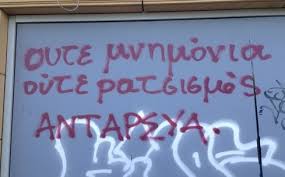 ουτε μνημόνια
ούτε ρατσισμός
ΑΝΤΑΡΣΥΑ.